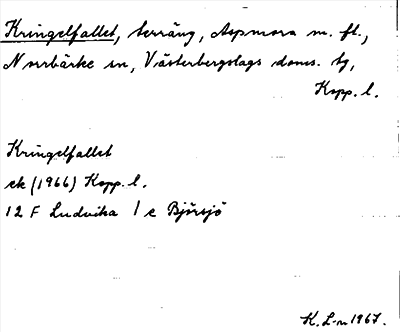 Kringelfallet, terräng, Aspmora m. fl.,
Norrbärke sn, Västerbergslags doms. tg,
Kopp. l.
Kringelfallet
ek (1966) Kopp. l.
12 F Ludvika 1 c Björsjö
K. L-n 1967.